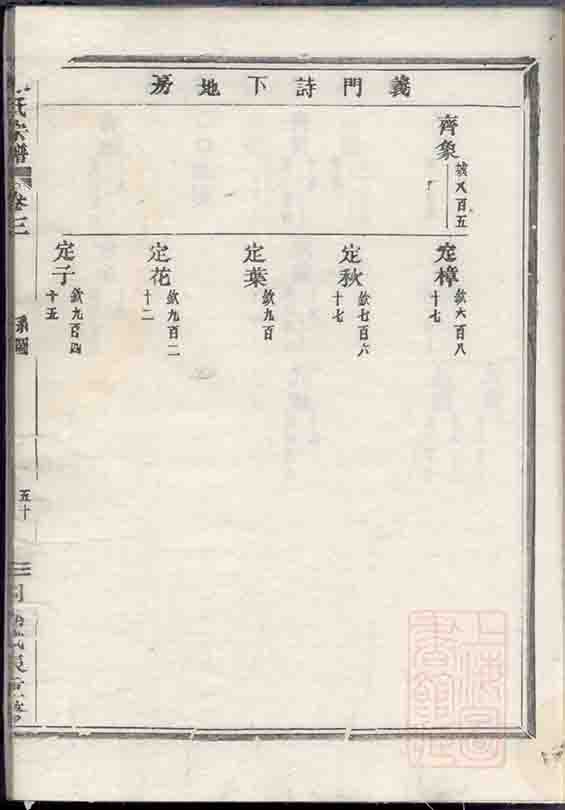 義門詩下地房
齊象
定樟
欽六百八
十七
定秋
欽七百六
十七
定葉
欽九百
定花
欽九百二
十二
定子
欽九百四
十五
氏宗譜
卷三
系圖
五十
上海圖
書館藏